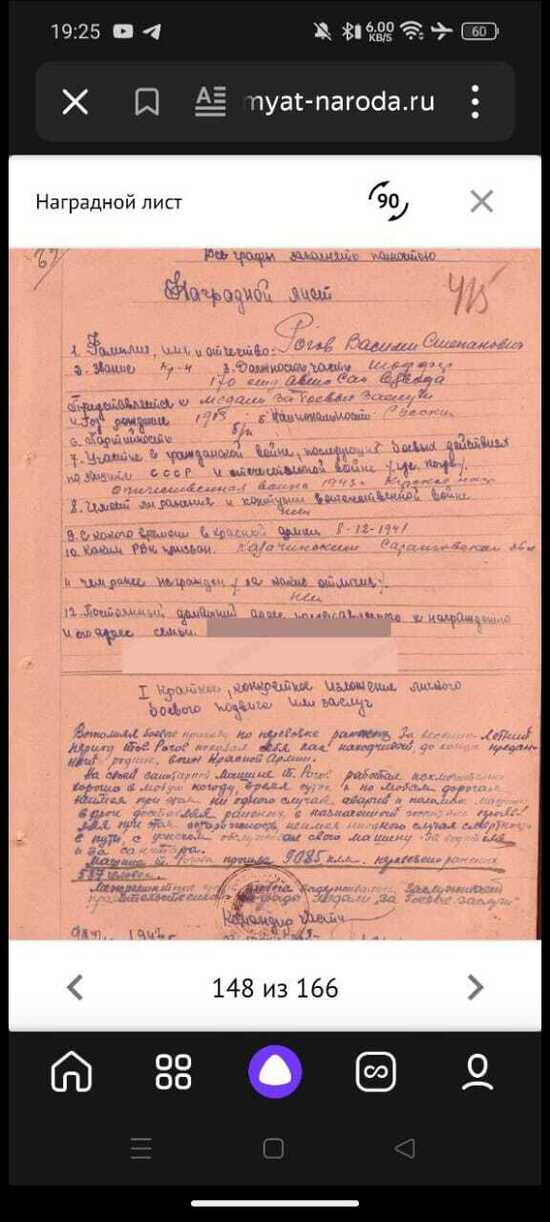 19:25
6.00 KB/S
60
myat-naroda.ru
Наградной лист
90
Все графы заполнять полностью
Наградной лист
1. Фамилия, имя и отчество: Рогов Василий Степанович
2. Звание кр-ц 3. Должность, часть шоффер
170 отд Авто Сан
Представляется к медали За боевые заслуги
4. Год рождения 1913 5. Национальность Русский
6. Партийность б/п
7. Участие в гражданской войне, последующих боевых действиях
по защите СССР и отечественной войне /где, когда/
Отечественная война 1943г. Курское напр.
8. Имеет ли ранения и контузии в отечественной войне
нет
9. С какого времени в красной армии 8-12-1941
10. Каким РВК призван. Саратовской обл
11 чем ранее награжден /за какие отличия/
Нет
12. Постоянный домашний адрес представляемого к награждению
и его адрес семьи
I Краткое, конкретное изложение личного
боевого подвига или заслуг
Выполняя боевые приказы по перевозке раненых За весенне-летний
период тов. Рогов показал себя как находчивый, до конца предан-
ный родине, воин Красной Армии.
На своей санитарной машине т. Рогов работал исключительно
хорошо в любую погоду, время суток и по любым дорогам
не имея при этом ни одного случая аварий и поломок машины
в пути, с риском обслуживая свою машину за водителя
и за санитара.
Машина т. Рогова прошла 9085 клм. перевезено раненых
587 человек.
правительственной награды медали "за боевые заслуги"
Командир части
148 из 166